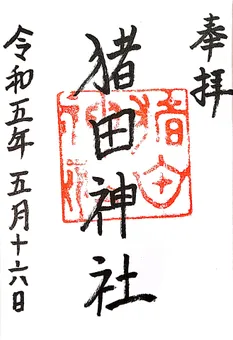 奉拝
猪田神社
猪田神社
令和五年五月十六日